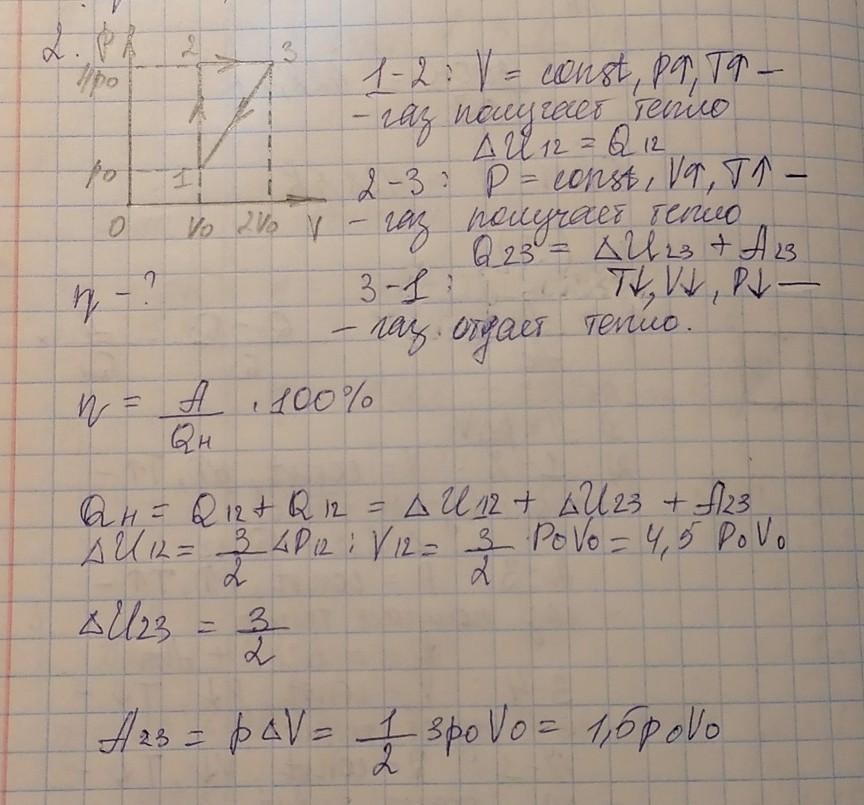 2. P
2 3
4p0
p0 1
0 V0 2V0 V
1-2: V = const, P↑, T↑ -
- газ получает тепло
ΔU12 = Q12
2-3: P = const, V↑, T↑ -
- газ получает тепло
Q23 = ΔU23 + A23
η - ?
3-1: T↓, V↓, P↓ -
- газ отдает тепло.
η = A/Qн · 100%
Qн = Q12 + Q12 = ΔU12 + ΔU23 + A23
ΔU12 = 3/2 ΔP12 ; V12 = 3/2 · P0V0 = 4,5 P0V0
ΔU23 = 3/2
A23 = pΔV = 1/2 3p0V0 = 1,5p0V0